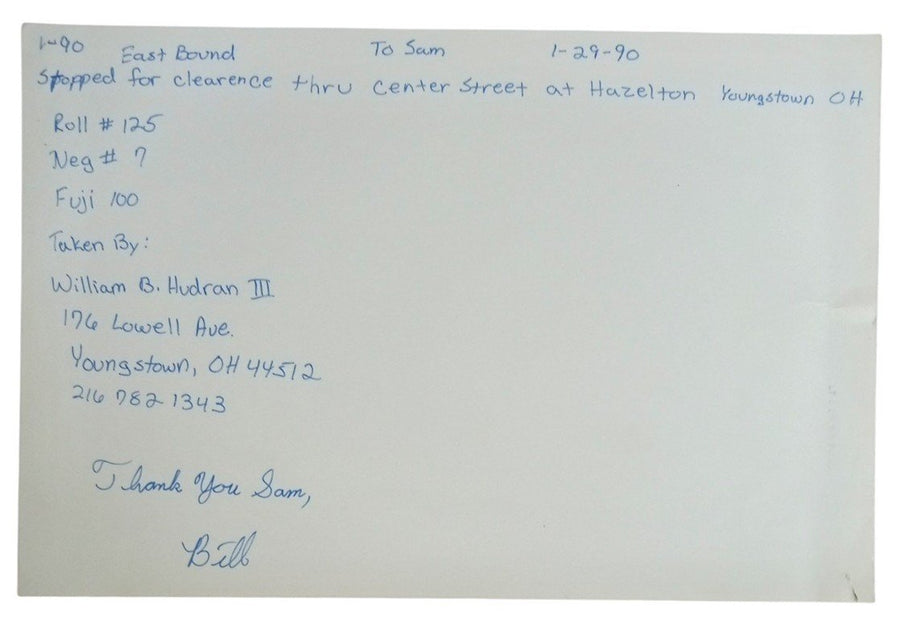 1-90 East Bound To Sam 1-29-90
Stopped for clearence thru Center Street at Hazelton Youngstown OH
Roll # 125
Neg # 7
Fuji 100
Taken By:
William B. Hudran III
176 Lowell Ave.
Youngstown, OH 44512
216 782 1343
Thank You Sam,
Bill